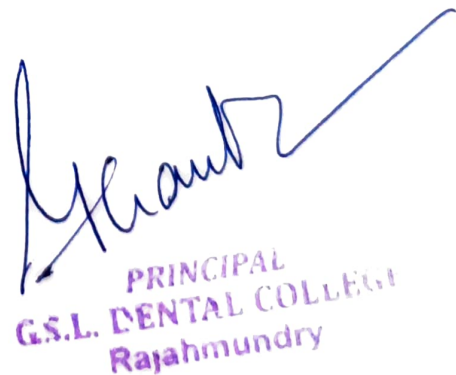 PRINCIPAL
G.S.L. DENTAL COLLEGE
Rajahmundry